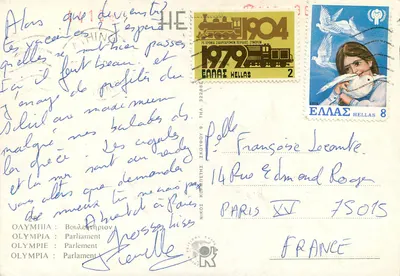 Alors que deviens tu
tes vacances j'espère
qu'elles se sont bien passées
Ici il fait beau. et
j'essaye de profiter du
Soleil au maximum
malgré mes balades ds
la grèce. Les cigales
et la mer sont au rendez
vous alors que demander
de mieux tu ne crois pas
A bientôt à Paris
Grosses
bises
HE
1904
1979
ΕΛΛΑΣ HELLAS 2
ΕΛΛΑΣ HELLAS 8
Melle Françoise Lecomte
14 Rue Edmond Roger
PARIS XV 75015
FRANCE
ΟΛΥΜΠΙΑ : Βουλευτήριον
OLYMPIA : Parliament
OLYMPIE : Parlement
OLYMPIA : Parlament